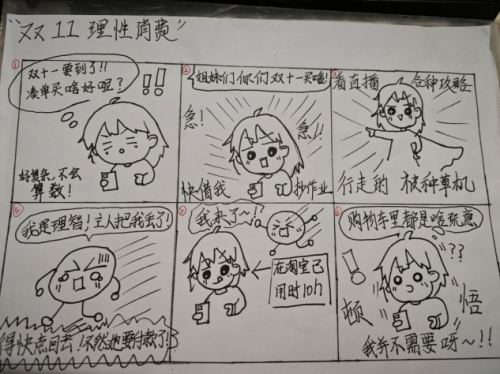 “双11理性消费”
①
双十一要到了!!
凑单买啥好呢?
!!
好复杂,不会
算数!
②
姐妹们你们双十一买啥!
急!
急!!
快借我
抄作业
③
看直播
各种攻略
行走的
被种草机
④
我是理智!主人把我丢了!
得快点回去!不然她要付款了!
⑤
我来了~!?
在淘宝已
用时10h
⑥
购物车里都是啥玩意
??
!
顿
悟
我并不需要呀~!!